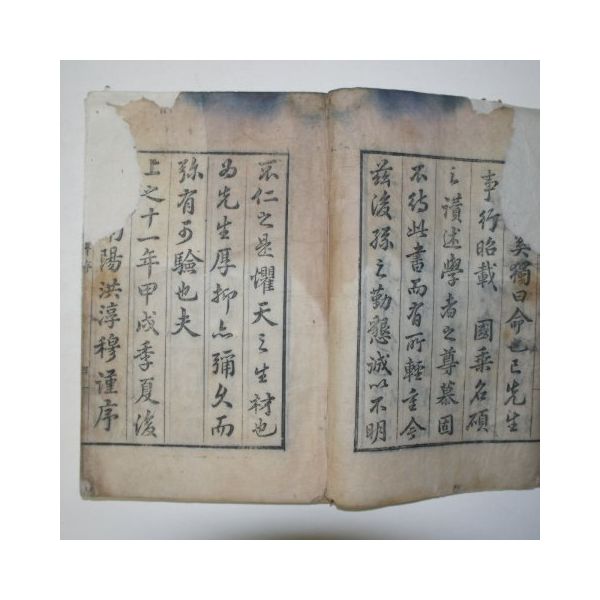 矣獨曰命也已先生
事行昭載 國乘名碩
之讃述學者之尊慕固
不待此書而有所輕重今
玆後孫之勤懇誠以不明
不仁之是懼天之生材也
為先生厚抑亦彌久而
弥有可驗也夫
上之十一年甲戌季夏後
陽洪淳穆謹序